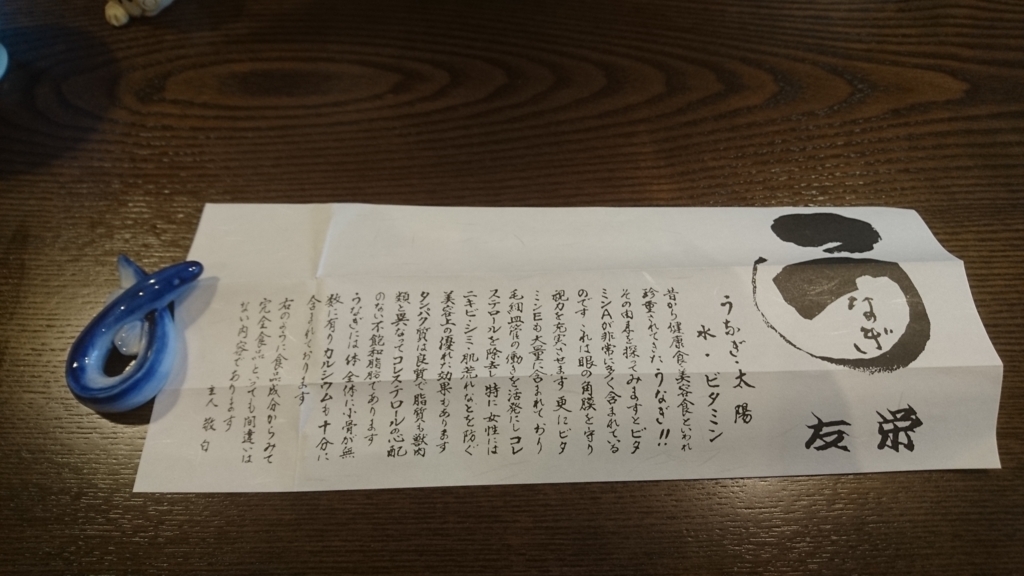 うなぎ
栄
友
うなぎ・太陽
水・ビタミン
昔から健康食・美容食といわれ
珍重されてきたうなぎ!!
その由厚を探てみますとビタ
ミンAが非常に多く含まれている
のです これは眼の角膜を守り
視力を充実させます 更にビタ
ミンEも大量に含まれており
毛細血管の働きを活発にしコレ
ステロールを除去し特に女性には
ニキビ・シミ・肌荒れなどを防ぐ
美容上の優れた効果もあります
タンパク質は良質で脂質も獣肉
類と異なってコレステロールの心配
のない不飽和脂肪であります
うなぎには体全体に小骨が無
数に有りカルシウムも十分に
含まれております
右のような食品成分からみて
完全食品といっても間違いは
ない内容であります
主人 敬白